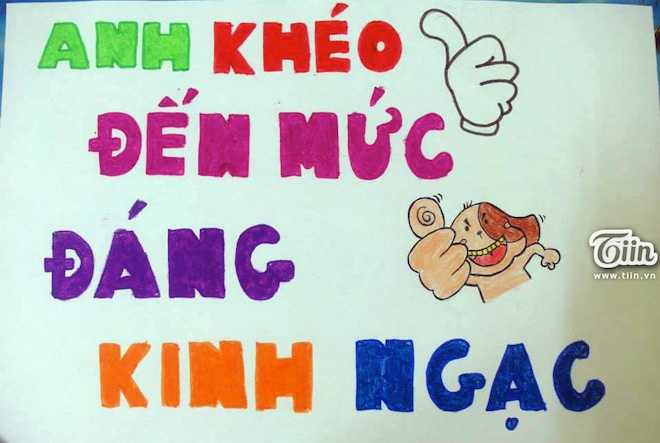 ANH KHÉO
ĐẾN MỨC
ĐÁNG
KINH NGẠC
Tiin
www.tiin.vn